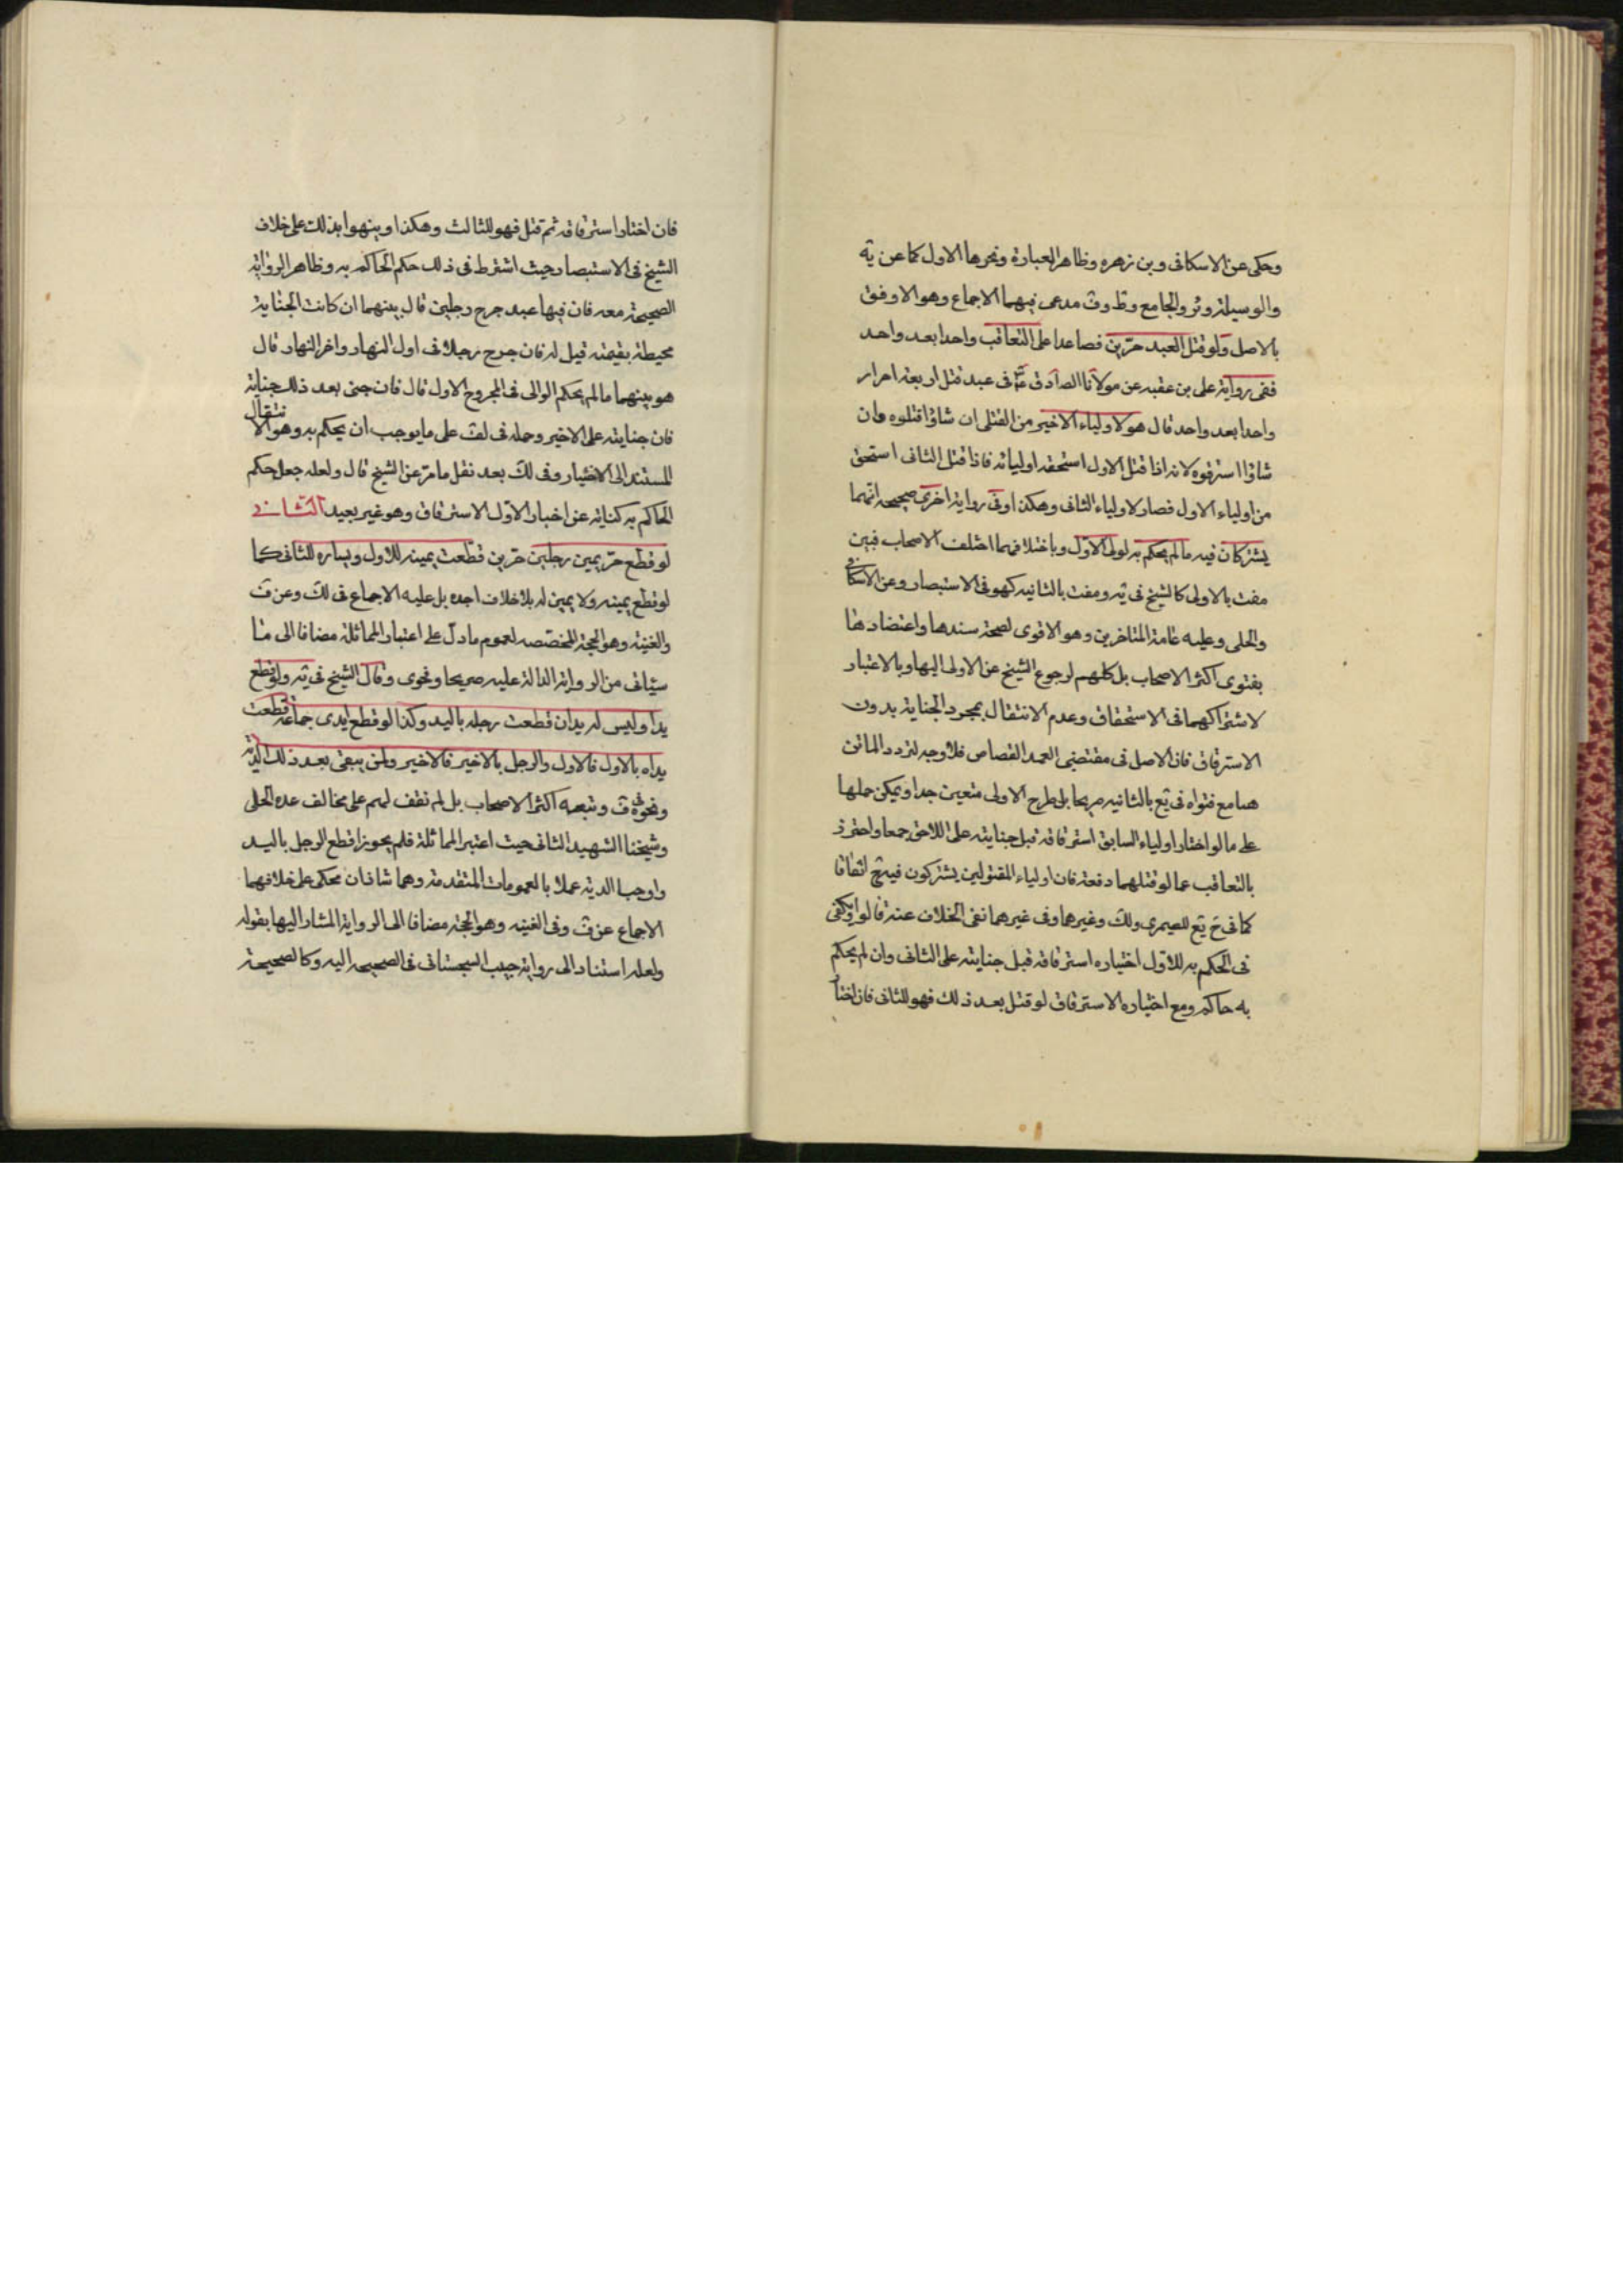 وحكى عن الاسكافى وبن زهره وظاهر العبارة ونحوها الاول كما عن ية
والوسيلة وئر والجامع وط وف مدعى فيهما الاجماع وهو الاوفق
بالاصل ولو قتل العبد حرّين فصاعدا على التعاقب واحدا بعد واحد
ففى رواية على بن عقبه عن مولانا الصادق عم فى عبد قتل اربعة احرار
واحدا بعد واحد قال هو لاولياء الاخير من القتلى ان شاؤا قتلوه وان
شاؤا استرقوه لانه اذا قتل الاول استحقه اوليائه فاذا قتل الثانى استحق
من اولياء الاول فصار لاولياء الثانى وهكذا وفى رواية اخرى صحيحه انهما
يشتركان فيه ما لم يحكم به لولى الاوّل وباختلافهما اختلف الاصحاب فبين
مفت بالاولى كالشيخ فى ية ومفت بالثانيه كهو فى الاستبصار وعن الاسكافى
والحلى وعليه عامة المتاخرين وهو الاقوى لصحة سندها واعتضادها
بفتوى اكثر الاصحاب بل كلهم لرجوع الشيخ عن الاولى اليها وبالاعتبار
لاشتراكهما فى الاستحقاق وعدم الانتقال بمجرد الجناية بدون
الاسترقاق فان الاصل فى مقتضى العمد القصاص فلا وجه لتردد الماتن
هنا مع فتواه فى يع بالثانيه صريحا بل طرح الاولى متعين جدا ويمكن حملها
على ما لو اختار اولياء السابق استرقاقه قبل جنايته على اللاحق جمعا واحترز
بالتعاقب عما لو قتلهما دفعة فان اولياء المقتولين يشتركون فيه ح اتفاقا
كما فى ح يع للصيمرى ولك وغيرهما وفى غيرهما نفى الخلاف عنه قالوا ويكفى
فى الحكم به للاوّل اختياره استرقاقه قبل جنايته على الثانى وان لم يحكم
به حاكم ومع اختياره الاسترقاق لو قتل بعد ذلك فهو للثانى فان اختا
فان اختار استرقاقه ثم قتل فهو للثالث وهكذا وينهوا بذلك على خلاف
الشيخ فى الاستبصار حيث اشترط فى ذلك حكم الحاكم به وظاهر الرواية
الصحيحة معه فان فيها عبد جرح رجلين قال بينهما ان كانت الجناية
محيطة بقيمته قيل له فان جرح رجلا فى اول النهار واخر النهار قال
هو بينهما ما لم يحكم الوالى فى المجروح الاول قال فان جنى بعد ذلك جناية
فان جنايته على الاخير وحمله فى لف على ما يوجب ان يحكم به وهو الانتقال
المستند الى الاختيار وفى لك بعد نقل ما مرّ عن الشيخ قال ولعله جعل حكم
الحاكم به كناية عن اختيار الاوّل الاسترقاق وهو غير بعيد الثانى
لو قطع حرّ يمين رجلين حرّين قطعت يمينه للاول ويساره للثانى كما
لو قطع يمينه ولا يمين له بلا خلاف اجده بل عليه الاجماع فى لك وعن ف
والغنية وهو الحجة المخصّصه لعموم ما دلّ على اعتبار المماثلة مضافا الى ما
سياتى من الرواية الدالة عليه صريحا وفحوى وقال الشيخ فى ية ولو قطع
يدا وليس له يدان قطعت رجله باليد وكذا لو قطع ايدى جماعة قطعت
يداه بالاول فالاول والرجل بالاخير فالاخير ولمن يبقى بعد ذلك الدية
ونحوه ف وتبعه اكثر الاصحاب بل لم نقف لهم على مخالف عدا الحلى
وشيخنا الشهيد الثانى حيث اعتبر المماثلة فلم يجوزا قطع الرجل باليد
واوجبا الدية عملا بالعمومات المتقدمة وهما شاذان محكى على خلافهما
الاجماع عن ف وفى الغنيه وهو الحجة مضافا الى الرواية المشار اليها بقوله
ولعله استنادا الى رواية حبيب السجستانى فى الصحيح اليه وكالصحيحة